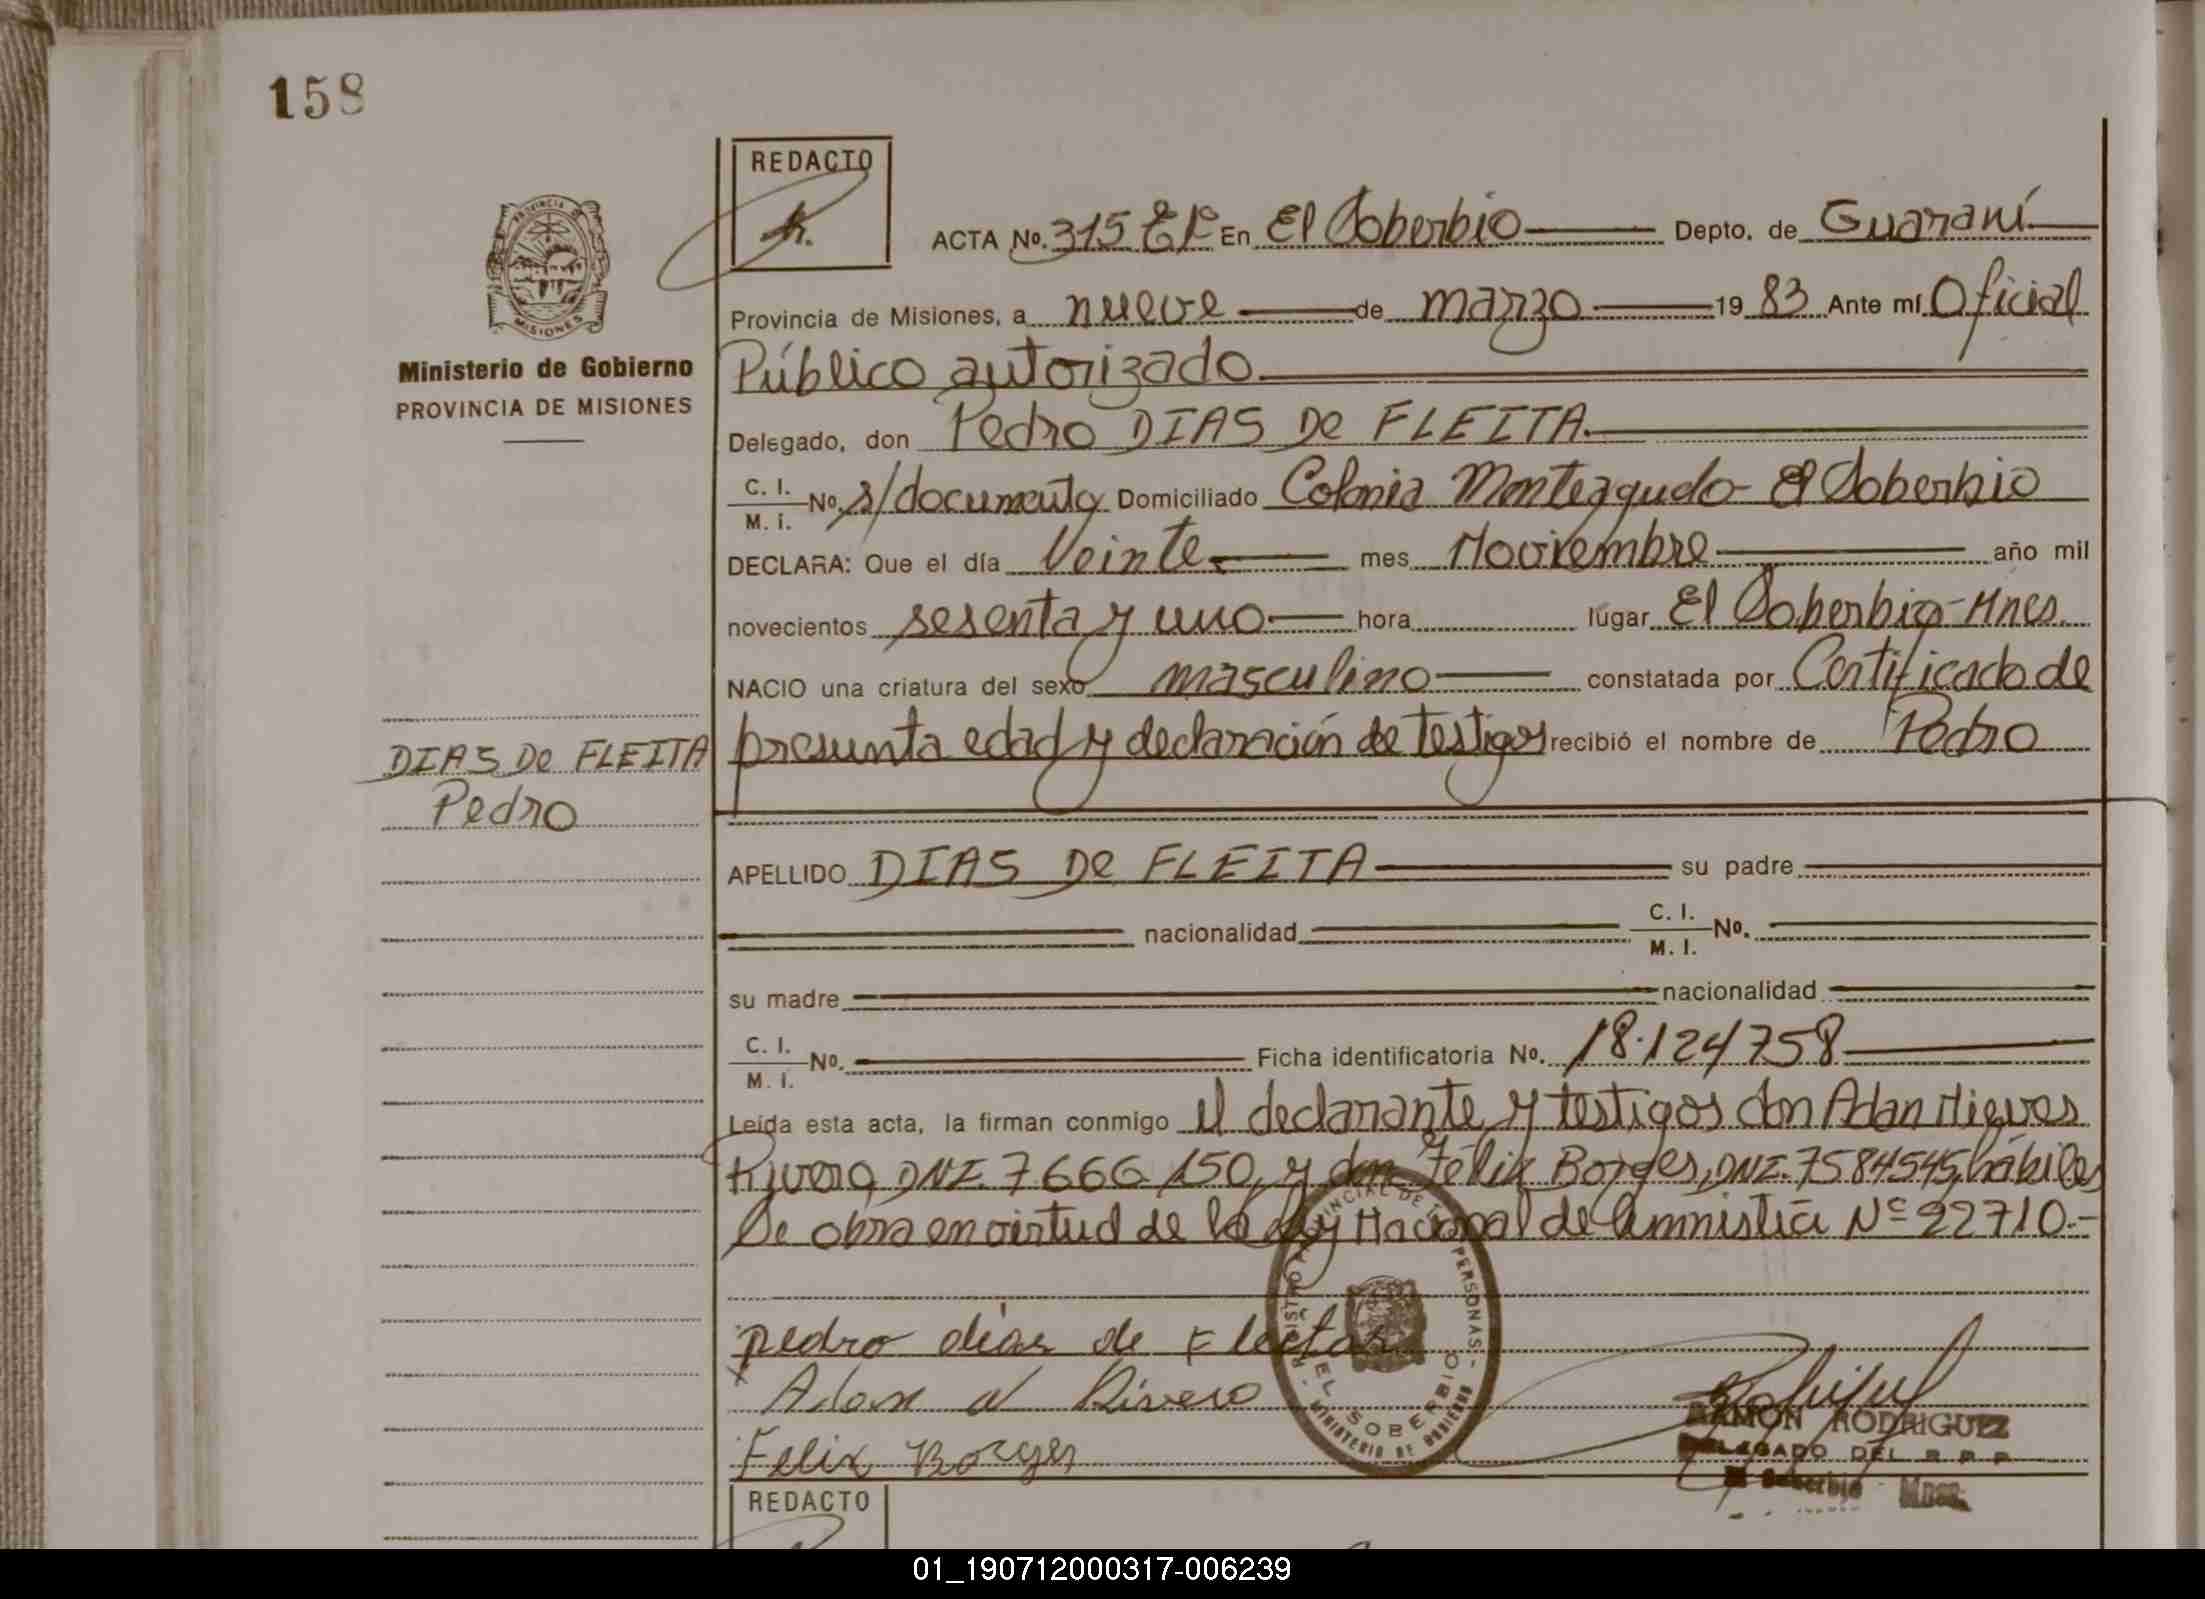 158
REDACTO
ACTA No. 315 En El Soberbio Depto. de Guaraní
Provincia de Misiones, a nueve de marzo 1983 Ante mí Oficial
Público autorizado
Delegado, don Pedro DIAS De FLEITA.
C. I. M. I. No. s/documento Domiciliado Colonia Monteagudo - El Soberbio
DECLARA: Que el día Veinte mes Noviembre año mil
novecientos sesenta y uno hora lugar El Soberbio - Mnes.
NACIO una criatura del sexo masculino constatada por Certificado de
presunta edad y declaración de testigos recibió el nombre de Pedro
APELLIDO DIAS De FLEITA su padre
nacionalidad C. I. M. I. No.
su madre nacionalidad
C. I. M. I. No. Ficha identificatoria No. 18.124758
Leída esta acta, la firman conmigo el declarante y testigos don Adan Nieves
Rivero, DNI. 7666150, y don Félix Borges, DNI. 7584545, hábiles
Se obra en virtud de la Ley Nacional de Amnistía Nº 22710.-
pedro dias de Fleitas
Adan N Rivero
Felix Borges
PROVINCIA DE
MISIONES
Ministerio de Gobierno
PROVINCIA DE MISIONES
DIAS De FLEITA
Pedro
REGISTRO PROVINCIAL DE PERSONAS
EL SOBERBIO
MINISTERIO DE GOBIERNO
RAMON RODRIGUEZ
DELEGADO DEL R P P
El Soberbio Mnes.
REDACTO
01_190712000317-006239